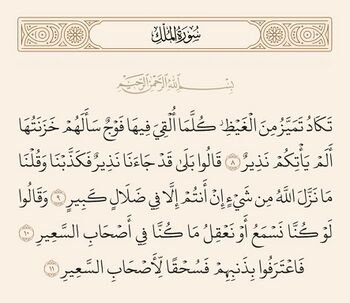 سُورَةُ المُلْكِ
بِسْمِ اللَّهِ الرَّحْمَٰنِ الرَّحِيمِ
تَكَادُ تَمَيَّزُ مِنَ الْغَيْظِ كُلَّمَا أُلْقِيَ فِيهَا فَوْجٌ سَأَلَهُمْ خَزَنَتُهَا
أَلَمْ يَأْتِكُمْ نَذِيرٌ ۝٨ قَالُوا بَلَى قَدْ جَاءَنَا نَذِيرٌ فَكَذَّبْنَا وَقُلْنَا
مَا نَزَّلَ اللَّهُ مِن شَيْءٍ إِنْ أَنتُمْ إِلَّا فِي ضَلَالٍ كَبِيرٍ ۝٩ وَقَالُوا
لَوْ كُنَّا نَسْمَعُ أَوْ نَعْقِلُ مَا كُنَّا فِي أَصْحَابِ السَّعِيرِ ۝١٠
فَاعْتَرَفُوا بِذَنبِهِمْ فَسُحْقًا لِّأَصْحَابِ السَّعِيرِ ۝١١